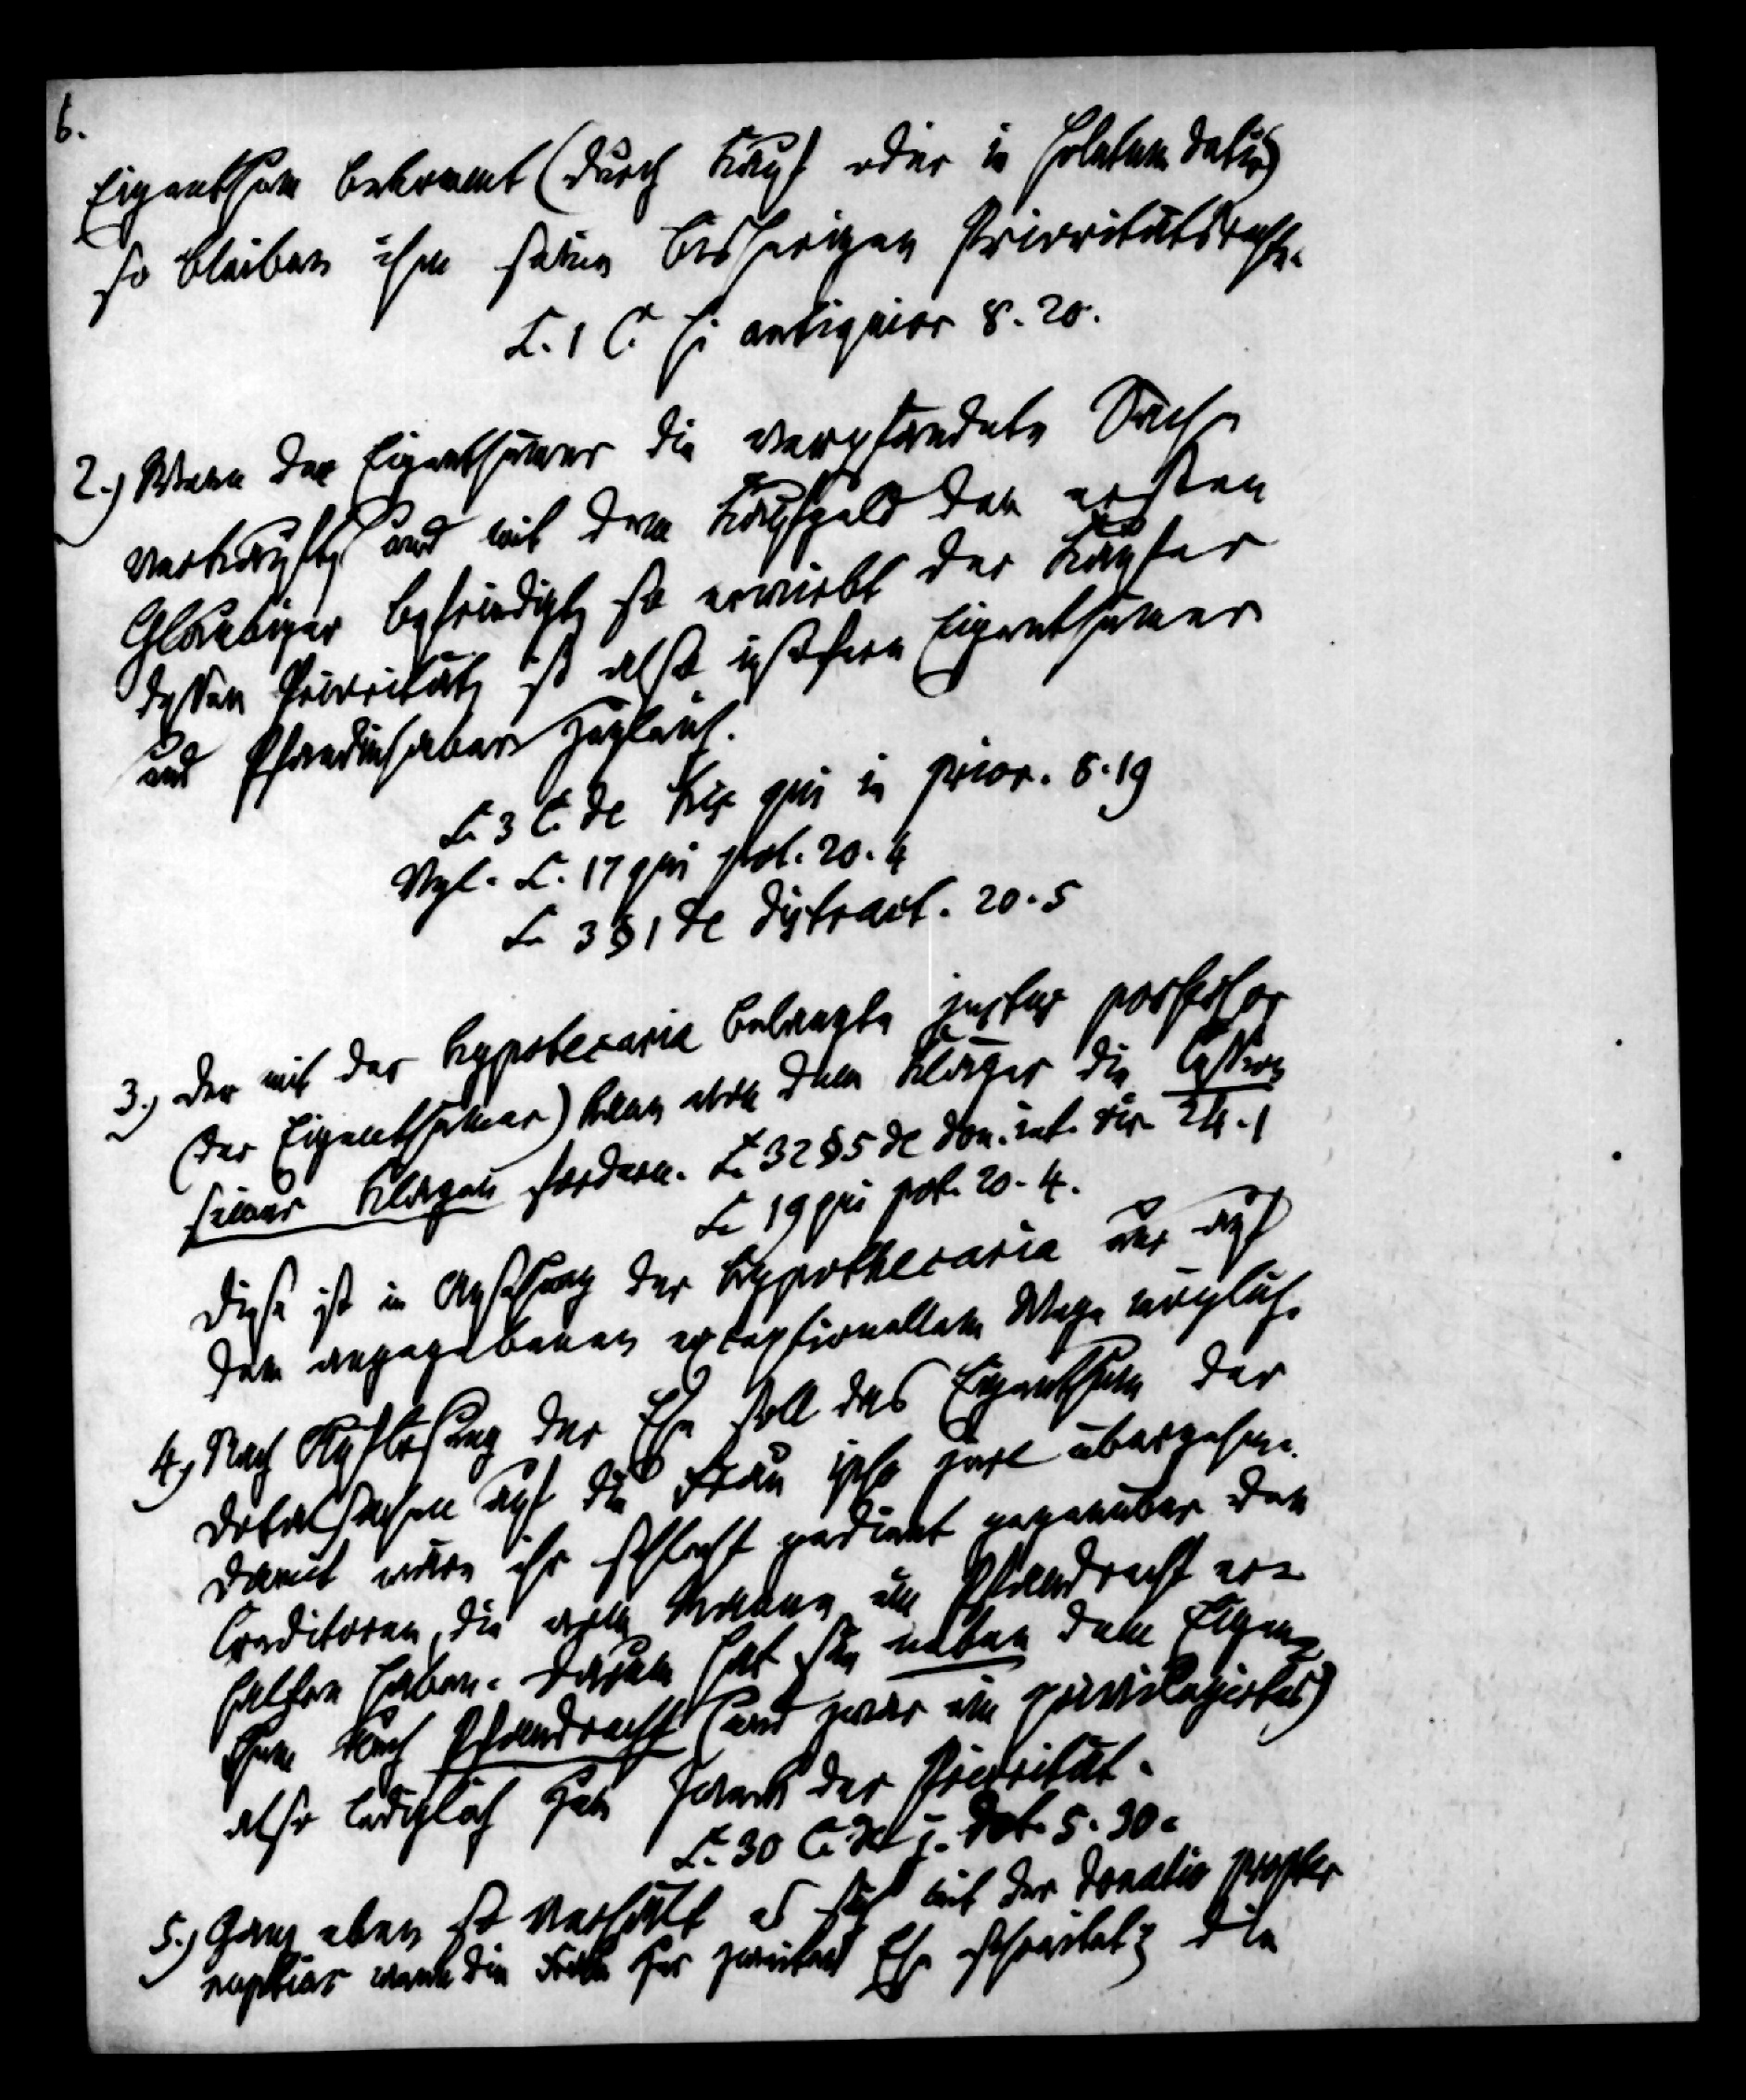 6.
Eigenthum bekommt (durch Kauf oder in solutum datio)
so bleiben ihm seine bisherigen Prioritätsrechte.
L. 1 C. si antiquior 8. 20.
2.) Wenn der Eigenthümer die verpfändete Sache
verkauft, und mit dem Kaufgeld den ersten
Gläubiger befriedigt, so erwirbt der Käufer
dessen Priorität, ist also insofern Eigenthümer
und Pfandinhaber zugleich.
L. 3 C. de his qui in prior. 8. 19
Vgl. L. 17 qui pot. 20. 4
L. 3 § 1 de distract. 20. 5
3.) Der mit der hypotecaria belangte justus possessor
(der Eigenthümer) kann von dem Kläger die Cession
seiner Klagen fordern. L. 32 § 5 de don. int. vir. 24. 1
L. 19 qui pot. 20. 4.
Diese ist in Ansehung der hypothecaria nur auf
dem angegebenen exceptionellen Wege möglich.
4.) Nach Auflösung der Ehe soll das Eigenthum der
Dotalsachen auf die Frau ipso jure übergehen.
Damit wäre ihr schlecht gedient gegenüber den
Creditoren, die vom Manne ein Pfandrecht er=
halten haben. Darum hat sie neben dem Eigen=
thum auch Pfandrecht (und zwar ein privilegirtes)
also lediglich zum Zweck der Priorität.
L. 30 C. de j. dot. 5. 30.
5.) Ganz eben so verhält es sich mit der donatio propter
nuptias wenn die Frau zur zweiten Ehe schreitet; die